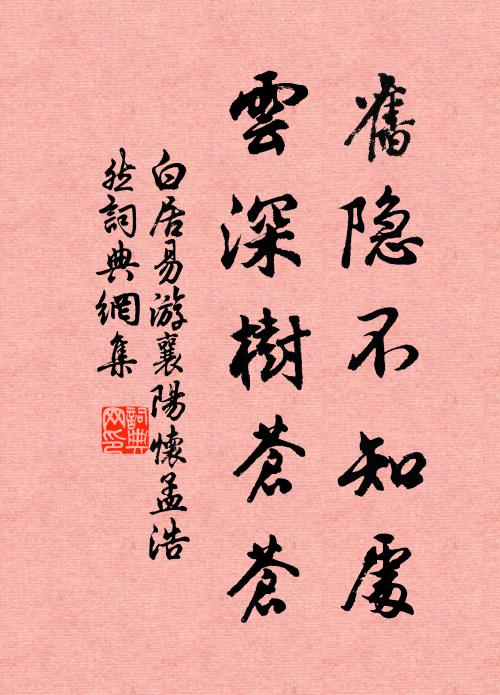 舊隐不知處
雲深樹蒼蒼
白居易游襄陽懷孟浩
然詞典網集
詞典
网印